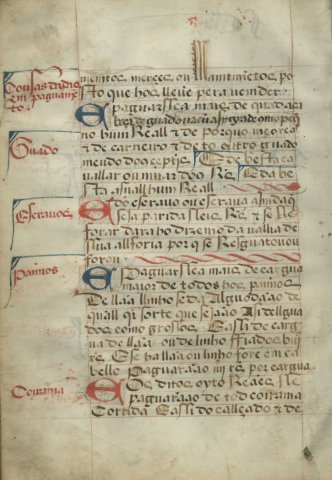 Cousas donde
se nom paguam
to.
mentos merçes ou mantimētos po
sto que hos leue pera vender
E paguarssea mais de quada
Guado
no hum Reall & de porquo
& de carneiro & de todo outro guado
meudo dous çeptijs. E de besta ca
uallar ou muar dous Rs. E da be
sta asnall hum Reall
Escrauos
E do escrauo ou escraua ainda que
seja parida seis Rs. & se se
forar dara ho dizemo da valia de
sua alforia por que se Resguatou ou
forou
Panos
E paguarssea mais de cargua
maior de todos hos panos
De llaã linho seda Algodaão de
quall quer sorte que sejaão Asi dellgua
dos como grossos. E assi de carg
ua de llaã ou de linho fiados biij
rs. E se ha llaã ou linho forem em ca
bello paguaraão iiij rs. por cargua
Coirama
E os ditos oyto Reaes se
paguaraão de toda coirama
Cortida E assi do calçado & de